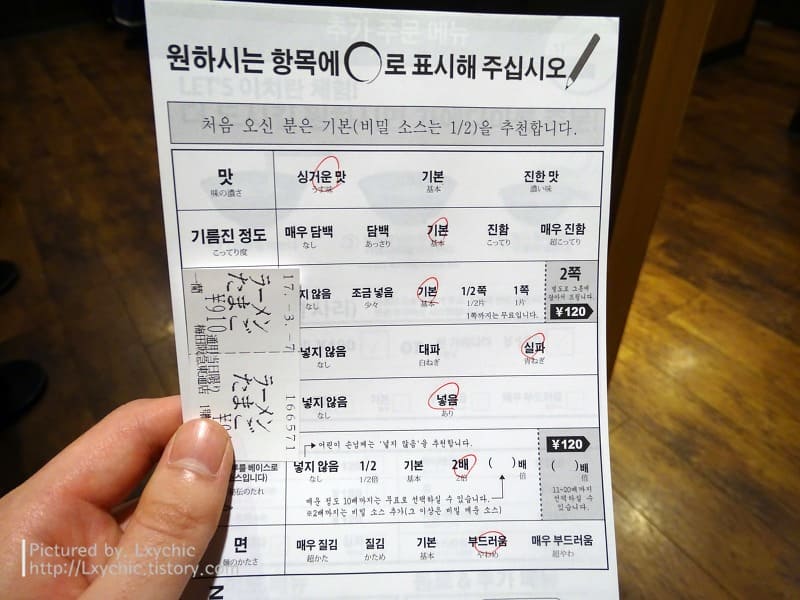 원하시는 항목에 ◯로 표시해 주십시오
처음 오신 분은 기본(비밀 소스는 1/2)을 추천합니다.
맛 싱거운 맛 기본 진한 맛
味の濃さ うす味 基本 濃い味
기름진 정도 매우 담백 담백 기본 진함 매우 진함
こってり度 なし あっさり 基本 こってり 超こってり
넣지 않음 조금 넣음 기본 1/2쪽 1쪽
なし 少々 基本 1/2片 1片
1쪽까지는 무료입니다.
2쪽
별도로 그릇에
담아서 드립니다.
¥120
넣지 않음 대파 실파
なし 白ねぎ 青ねぎ
넣지 않음 넣음
なし あり
어린이 손님께는 '넣지 않음'을 추천합니다.
넣지 않음 1/2 기본 2배 ( )배
なし 1/2倍 基本 2倍 倍
매운 정도 10배까지는 무료로 선택하실 수 있습니다.
※2배까지는 비밀 소스 추가(그 이상은 비밀 매운 소스)
¥120
( )배
倍
11~20배까지
선택하실 수
있습니다.
면 매우 질김 질김 기본 부드러움 매우 부드러움
麺のかたさ 超かた かため 基本 やわめ 超やわ
17.-3.-7
ラーメン
たまご
¥910
一蘭
ラーメン
たまご
166571
Pictured by. Lxychic
http://Lxychic.tistory.com